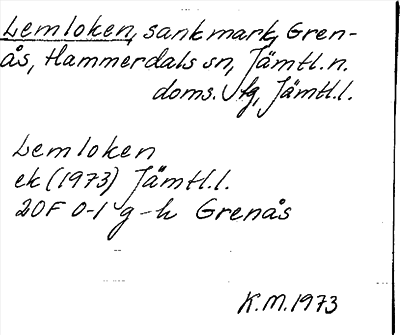 Lemloken, sankmark, Gren-
ås, Hammerdals sn, Jämtl. n.
doms. tg, Jämtl.l.
Lemloken
ek (1973) Jämtl.l.
20F 0-1 g-h Grenås
K.M.1973